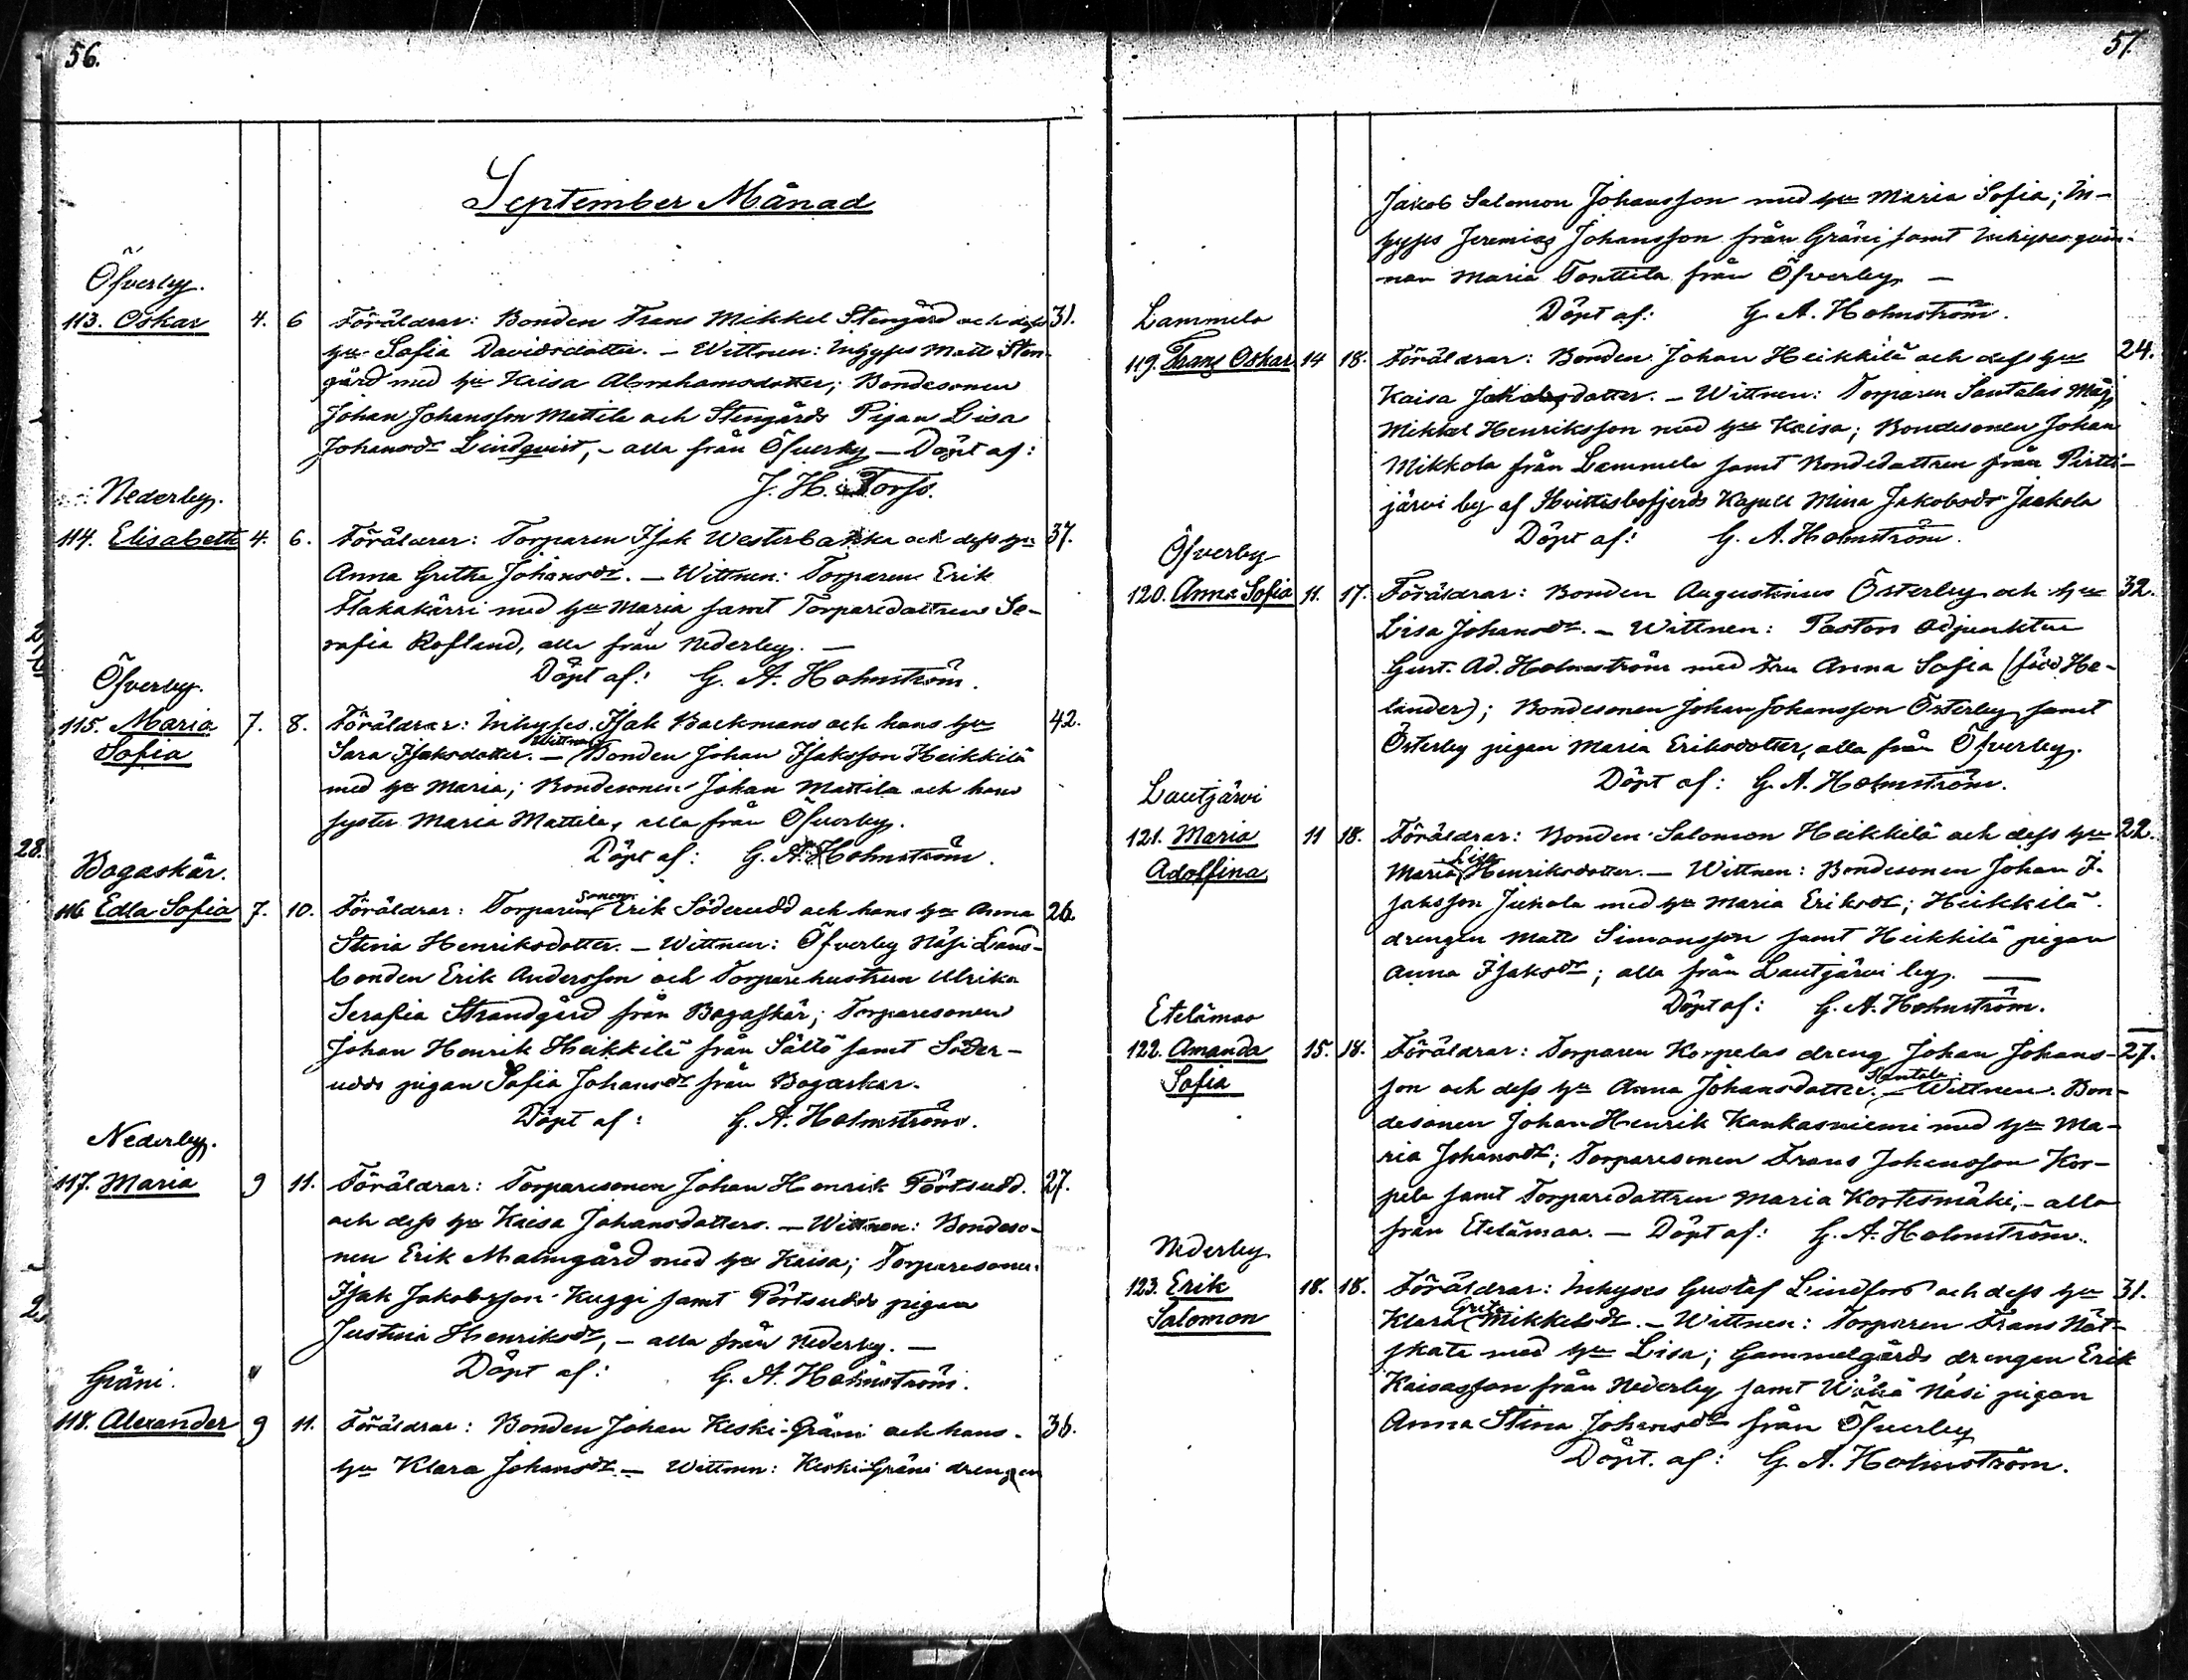 56.
September Månad
Öfverby.
113. Oskar 4. 6 Föräldrar: Bonden Frans Mikkel Stengård och dess 31.
hu Sofia Davidsdotter. – Wittnen: Inhyses Matts Sten-
gård med hu Kaisa Abrahamsdotter; Bondesonen
Johan Johansson Mattila och Stengårds Pigan Lisa
Johansdr Lindqvist, – alla från Öfverby – Döpt af:
J. H. Torss.
Nederby.
114. Elisabeth 4. 6. Föräldrar: Torparen Isak Westerbakka och dess hu 37.
Anna Gretha Johansdr. – Wittnen: Torparen Erik
Flakakärri med hu Maria, samt Torparedattren Se-
rafia Rosland, alla från Nederby. –
Döpt af: G. A. Holmström.
Öfverby.
115. Maria 7. 8. Föräldrar: Inhyses Isak Backmans och hans hu 42.
Sofia
Sara Isaksdotter. – Wittnen: Bonden Johan Isaksson Heikkilä
med hu Maria; Bondesonen Johan Mattila och hans
syster Maria Mattila, alla från Öfverby.
Döpt af: G. A. Holmström.
28.
Bogaskär.
116 Edla Sofia 7. 10. Föräldrar: Torpare sonen Erik Söderudd och hans hu Anna 26.
Stina Henriksdotter. – Wittnen: Öfverby Näsi Land-
bonden Erik Andersson och Torparehustrun Ulrika
Serafia Strandgård från Bogaskär; Torparesonen
Johan Henrik Heikkilä från Sältö samt Söder-
udds pigan Sofia Johansdr från Bogaskär.
Döpt af: G. A. Holmström.
Nederby.
117. Maria 9 11. Föräldrar: Torparesonen Johan Henrik Pörtsudd. 27.
och dess hu Kaisa Johansdotters. – Wittnen: Bondeso-
nen Erik Malmgård med hu Kaisa; Torparesonen
Isak Jakobsson Kuggi samt Pörtsudds pigan
Justina Henriksdr, – alla från Nederby. –
Döpt af: G. A. Holmström.
Gräni.
118. Alexander 9 11. Föräldrar: Bonden Johan Keski-Gräni och hans 36.
hu Klara Johansdr – Wittnen: Keski-Gräni drengen
57.
Jakob Salomon Johansson med hu Maria Sofia; In-
hyses Jeremias Johansson från Gräni samt Inhyses qvin-
nan Maria Tonttila från Öfverby. –
Döpt af: G. A. Holmström.
Lammela
119. Frans Oskar 14 18. Föräldrar: Bonden Johan Heikkilä och dess hu 24.
Kaisa Jakobsdotter. – Wittnen: Torparen Santalas Måg
Mikkel Henriksson med hu Kaisa; Bondesonen Johan
Mikkola från Lammela samt Bondedattren från Pirtti-
järvi by af Hvittisbofjerds Kapell Mina Jakobsdr Jaakola
Döpt af: G. A. Holmström.
Öfverby
120. Anna Sofia 11. 17. Föräldrar: Bonden Augustinus Österby och hu 32.
Lisa Johansdr. – Wittnen: Pastors Adjunkten
Gust. Ad. Holmström med Fru Anna Sofia (född He-
lander); Bondesonen Johan Johansson Österby samt
Österby pigan Maria Eriksdotter, alla från Öfverby.
Döpt af: G. A. Holmström.
Lautjärvi
121. Maria 11 18. Föräldrar: Bonden Salomon Heikkilä och dess hu 22.
Adolfina
Maria Lisa Henriksdotter. – Wittnen: Bondesonen Johan I-
saksson Juhola med hu Maria Eriksdr; Heikkilä
drengen Matts Simonsson samt Heikkilä pigan
Anna Isaksdr; alla från Lautjärvi by. –
Döpt af: G. A. Holmström.
Etelämaa
122. Amanda 15. 18. Föräldrar: Torparen Korpelas dreng Johan Johans- 27.
Sofia
son och dess hu Anna Johansdotter Santala. – Wittnen. Bon-
desonen Johan Henrik Kankasniemi med hu Ma-
ria Johansdr; Torparesonen Frans Johansson Kor-
pela samt Torparedattren Maria Kortesmäki, – alla
från Etelämaa. – Döpt af: G. A. Holmström.
Nederby
123. Erik 18. 18. Föräldrar: Inhyses Gustaf Lindfors och dess hu 31.
Salomon
Klara Greta Mikkelsdr. – Wittnen: Torparen Frans Nöt-
skata med hu Lisa; Gammelgårds drengen Erik
Kaisasson från Nederby samt Wähä Näsi pigan
Anna Stina Johansdr från Öfverby
Döpt. af: G. A. Holmström.